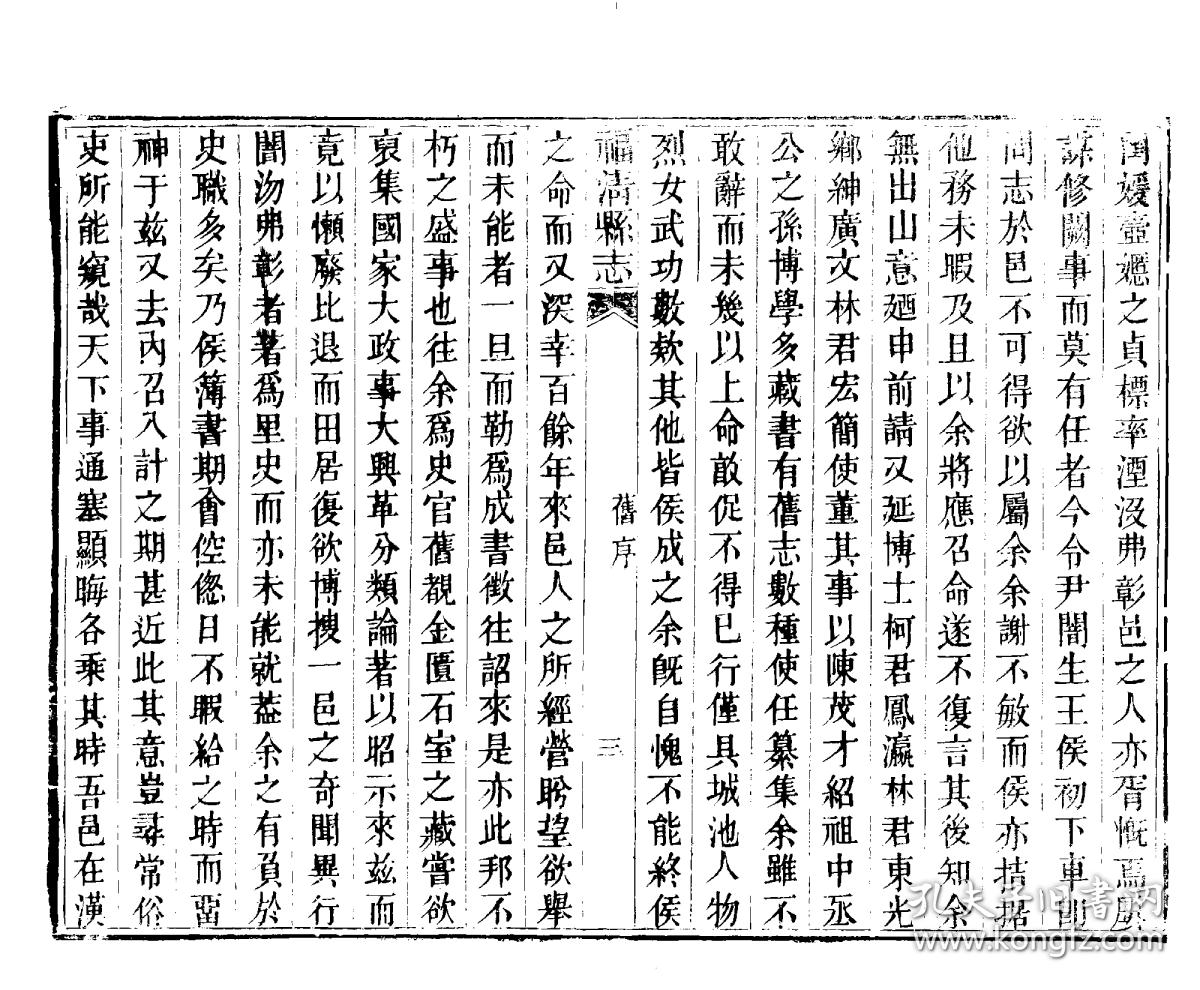 閨媛壼嬺之貞標率湮沒弗彰邑之人亦胥慨焉屢
謀修闕事而莫有任者今令尹闇生王侯初下車卽
問志於邑不可得欲以屬余余謝不敏而侯亦拮据
他務未暇及且以余將應召命遂不復言其後知余
無出山意廼申前請又延博士柯君鳳瀛林君東光
鄉紳廣文林君宏簡使董其事以陳茂才紹祖中丞
公之孫博學多藏書有舊志數種使任纂集余雖不
敢辭而未幾以上命敦促不得已行僅具城池人物
烈女武功數欵其他皆侯成之余旣自愧不能終侯
福淸縣志 舊序 三
之命而又深幸百餘年來邑人之所經營盻望欲舉
而未能者一旦而勒爲成書徵往詔來是亦此邦不
朽之盛事也往余爲史官舊覩金匱石室之藏嘗欲
裒集國家大政事大興革分類論著以昭示來玆而
竟以懶廢比退而田居復欲博搜一邑之奇聞異行
闇汤弗彰者著爲里史而亦未能就葢余之有負於
史職多矣乃侯簿書期會倥傯日不暇給之時而畱
神于玆又去內召入計之期甚近此其意豈尋常俗
吏所能窺哉天下事通塞顯晦各乘其時吾邑在漢
孔夫子旧书网
www.kongfz.com